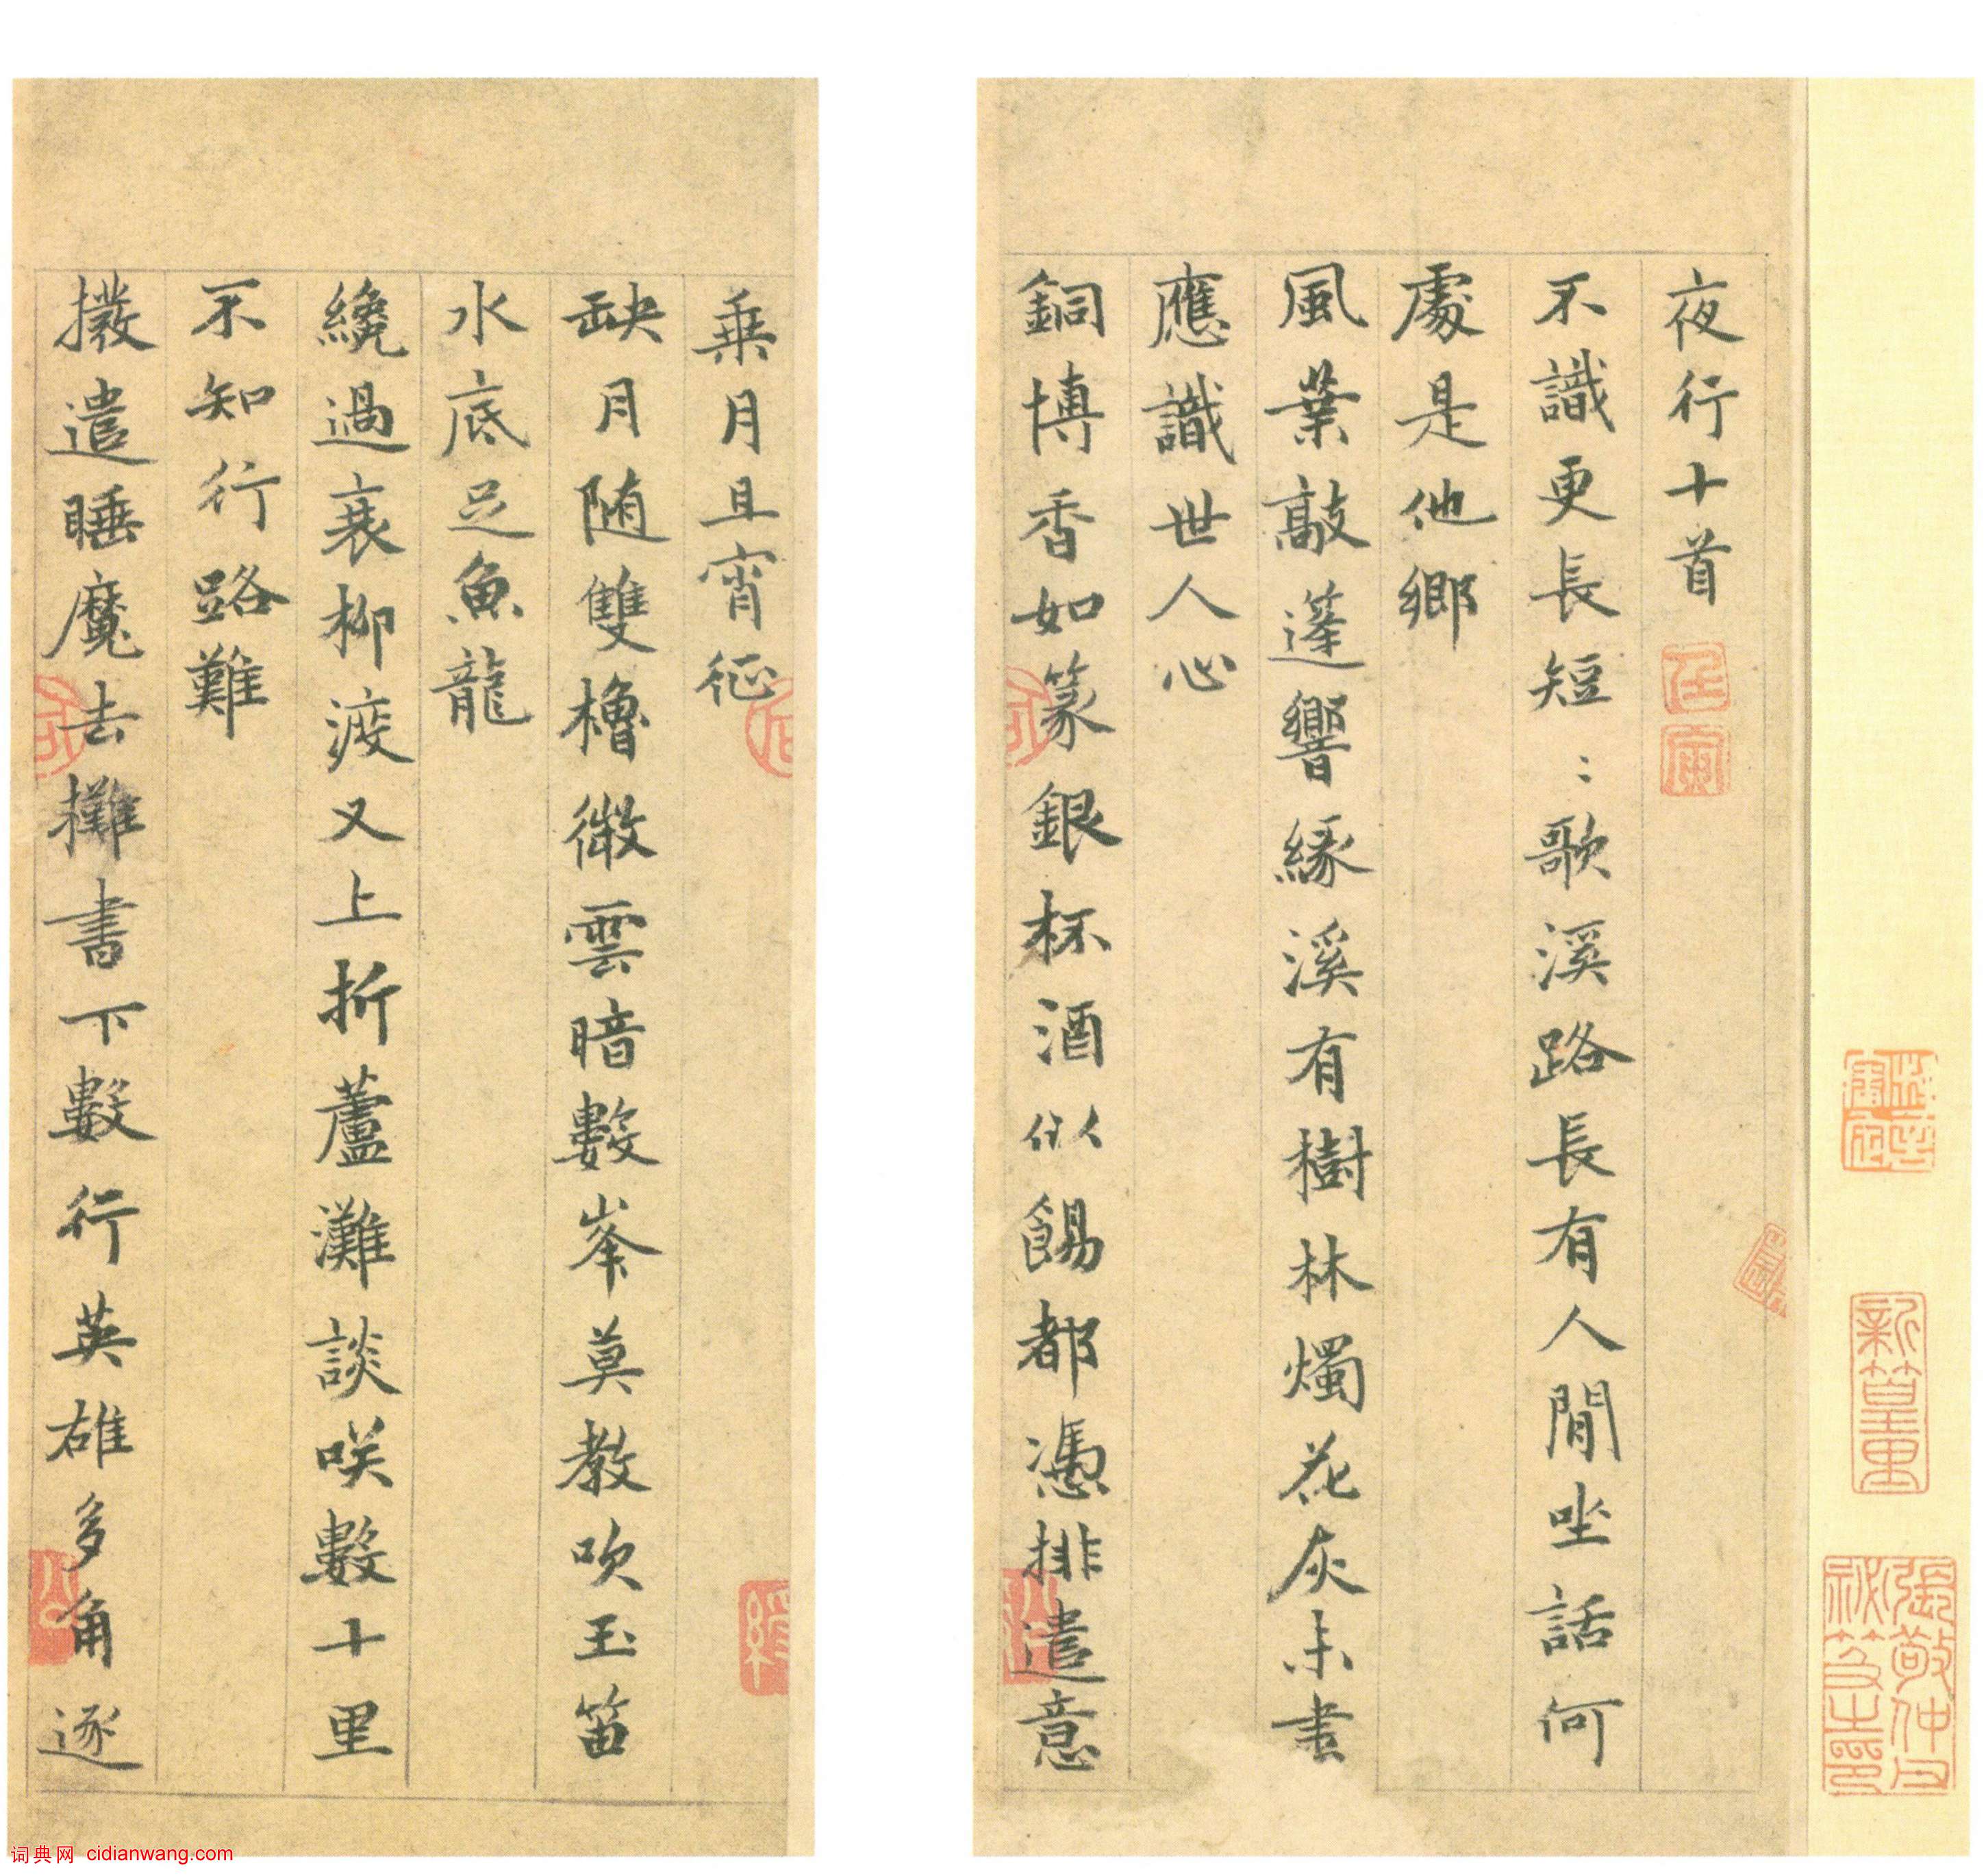 夜行十首
不識更長短〻歌溪路長有人閒坐話何
處是他鄉
風葉敲蓬響緣溪有樹林燭花灰未盡
應識世人心
銅博香如篆銀杯酒似餳都憑排遣意
乗月且宵征
缺月随雙櫓微雲暗數峯莫教吹玉笛
水底足魚龍
纔過衰柳渡又上折蘆灘談咲數十里
不知行路難
撥遣睡魔去攤書下數行英雄多角逐
張敬仲父
秘笈之印
词典网 cidianwang.com